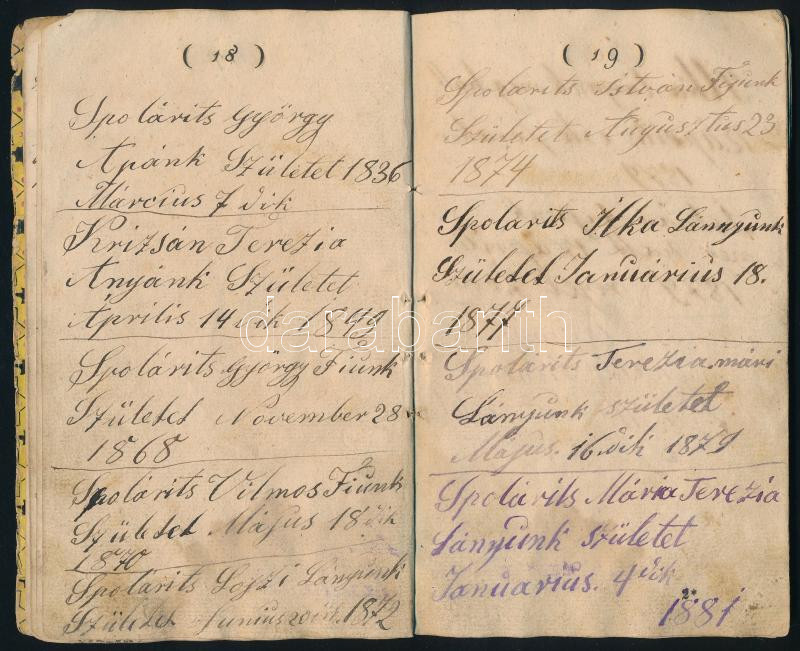 ( 18 )
Spolárits György
Apánk Született 1836
Március 7 dik
Krizsán Terezia
Anyánk Született
Április 14 dik 1849
Spolárits György Fiunk
Születet November 28
1868
Spolárits Vilmos Fiunk
Születet Május 18 dik
1870
Spolárits Lojzi Lányunk
Születet Junius 20 ik. 1872
( 19 )
Spolarits István Fijunk
Születet Augusztus 23
1874
Spolarits Ilka Lánnyunk
Születet Januárius 18.
1877
Spolarits Terezia mári
Lányunk születet
Május. 16. dik 1879
Spolárits Mária Terezia
Lányunk születet
Januarius. 4 dik
1881
darabanth